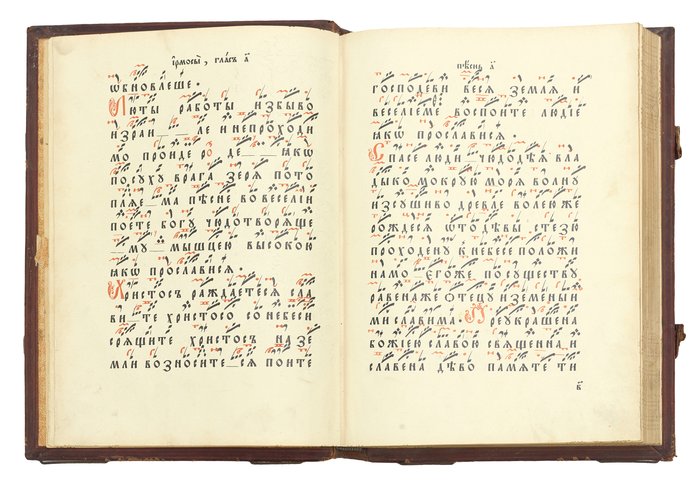 і҆рмосы̀, гла́съ а҃
ѡбновлеше.
Люты работы избыво
израи ле и непроходи
мо проиде ро де ѩкѡ
посуху врага зерѧ пото
плѧе ма пѣсне во веселіи
поете богу чюдотворѧще
му мышцею высокою
ѩкѡ прослависѧ.
Христосъ раждаетесѧ сла
ви те христосо сонебеси
срѧщите христосъ на зе
мли возносите сѧ поите
пѣснь а҃
господеви весѧ землѧ и
веселіеме воспоите людіе
ѩкѡ прослависѧ.
Спасе люди чюдодѣѧ вла
дыко мокрую морѧ волну
изсушиво древле волею же
рождесѧ ѿ дѣвы стезю
проходену к небесе положи
намо егоже по существу
равена же отецу и земеныи
ми славима. Преукрашена
божіею славою священна и
славена дѣво памѧте ти
в҃